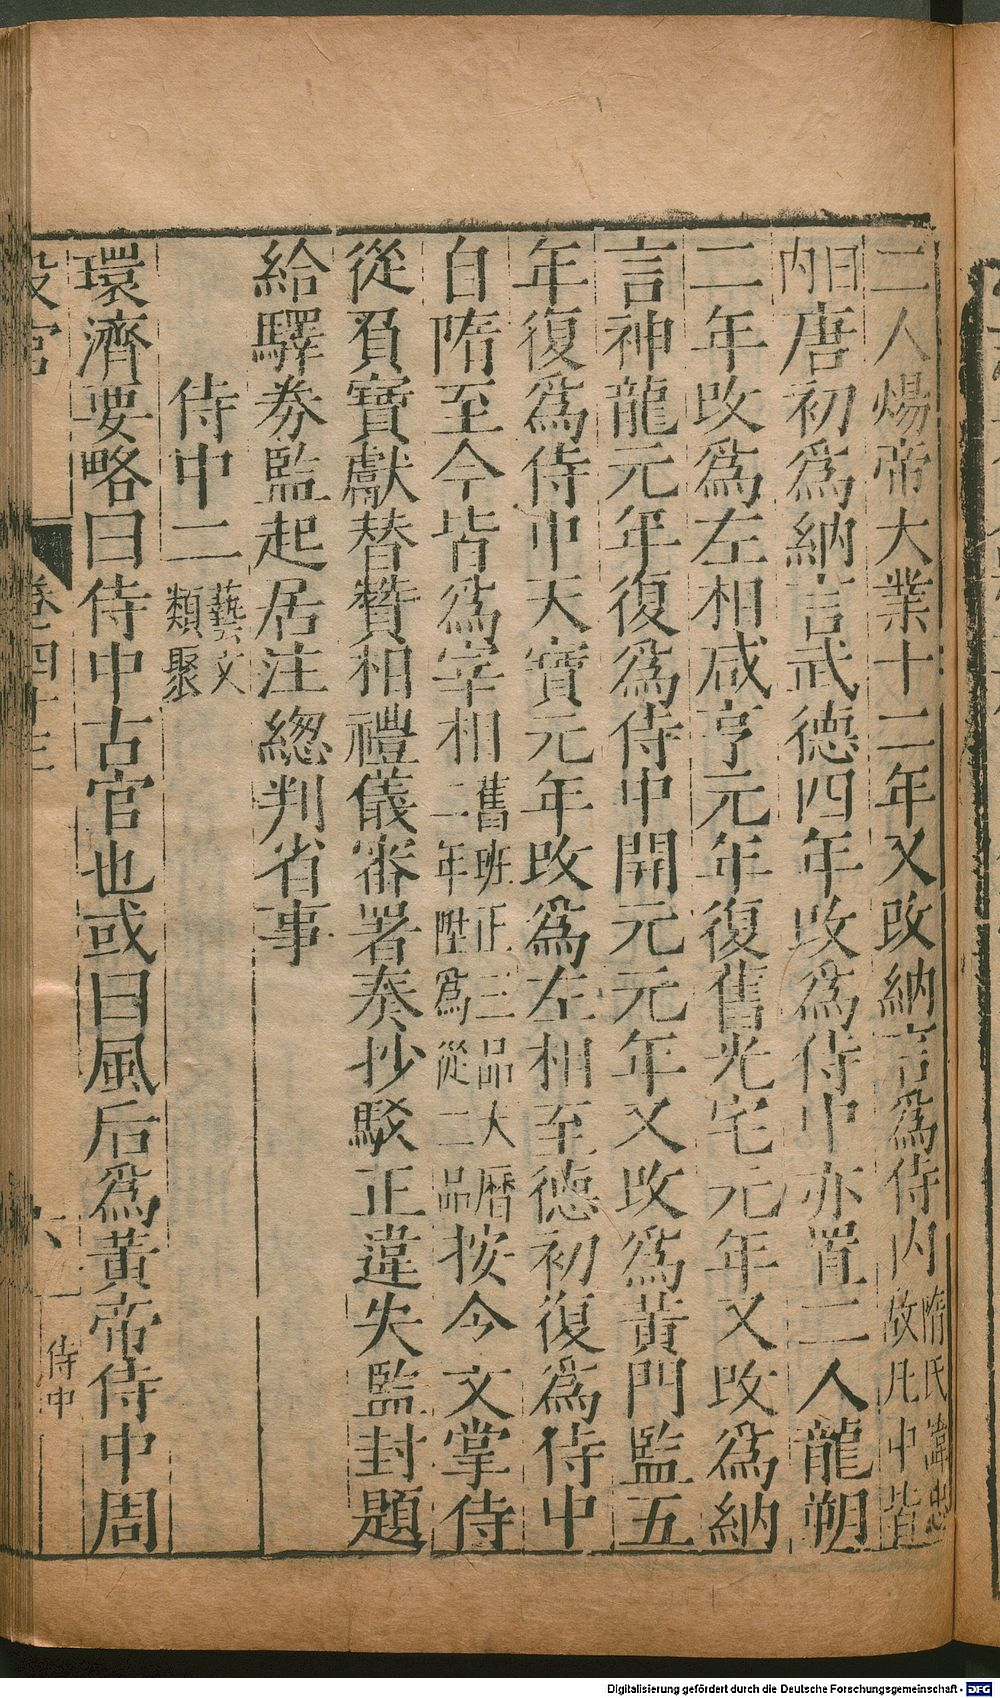 二人煬帝大業十二年又改納言爲侍內隋氏諱忠故凡中皆
曰內唐初爲納言武德四年改爲侍中亦置二人龍朔
二年改爲左相咸亨元年復舊光宅元年又改爲納
言神龍元年復爲侍中開元元年又改爲黃門監五
年復爲侍中天寶元年改爲左相至德初復爲侍中
自隋至今皆爲宰相舊班正三品大曆二年陞爲從二品按今文掌侍
從負寶獻替贊相禮儀審署奏抄駁正違失監封題
給驛券監起居注總判省事
侍中二藝文類聚
環濟要略曰侍中古官也或曰風后爲黃帝侍中周
設官
卷四十三
六
侍中
Digitalisierung gefördert durch die Deutsche Forschungsgemeinschaft - DFG